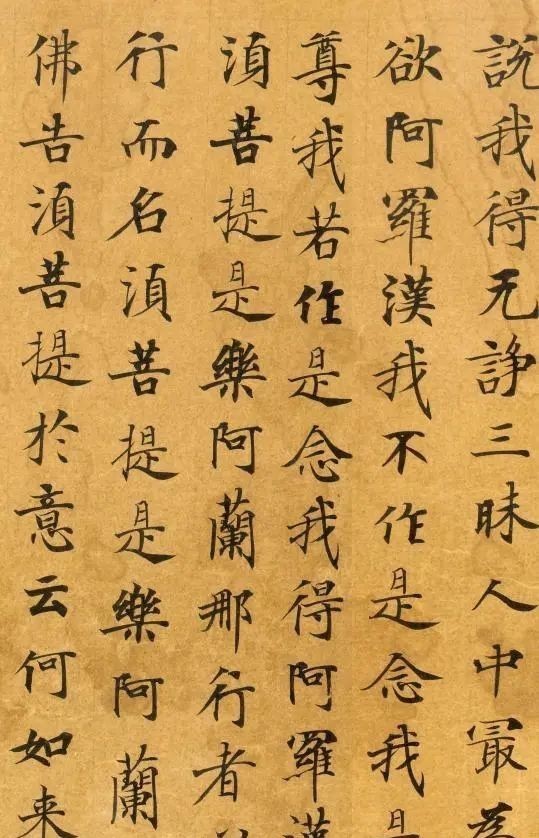 說我得无諍三昧人中冣
欲阿羅漢我不作是念我是
尊我若作是念我得阿羅漢
湏菩提是樂阿蘭那行者
行而名湏菩提是樂阿蘭
佛告湏菩提於意云何如来